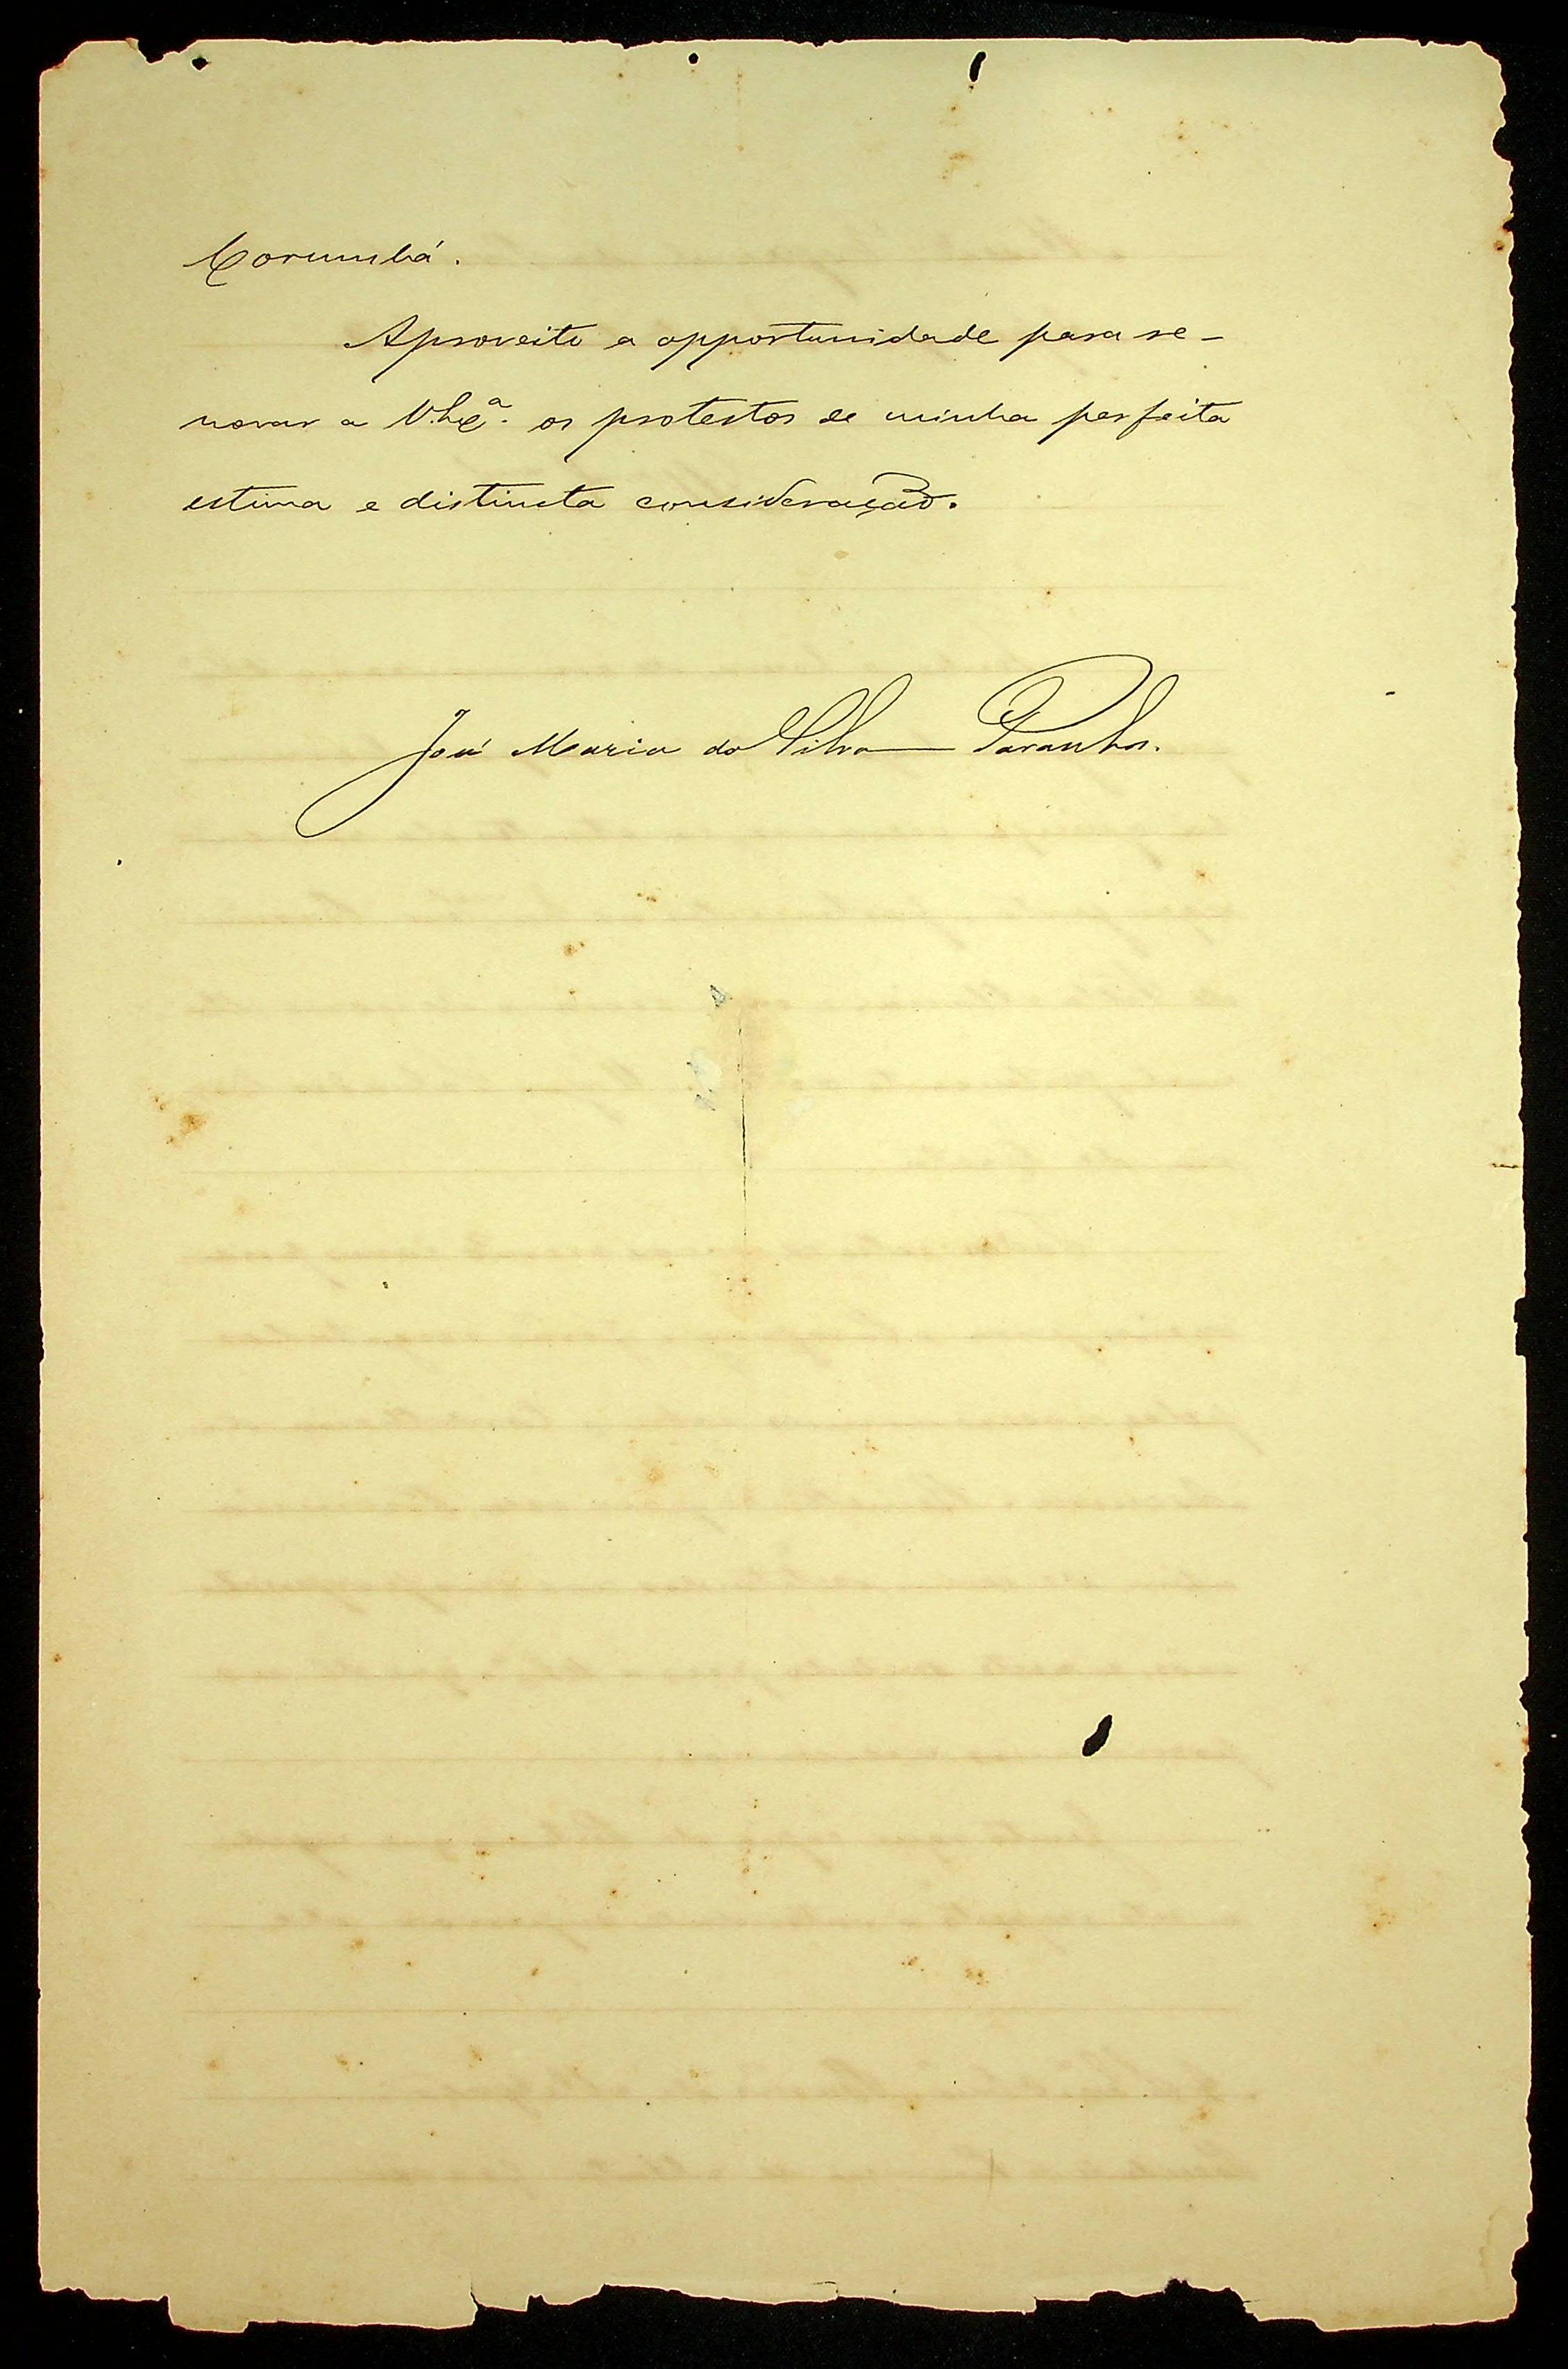 Corumbá.
Aproveito a opportunidade para re-
novar a V. Exª. os protestos de minha perfeita
estima e distincta consideração.
José Maria da Silva Paranhos.